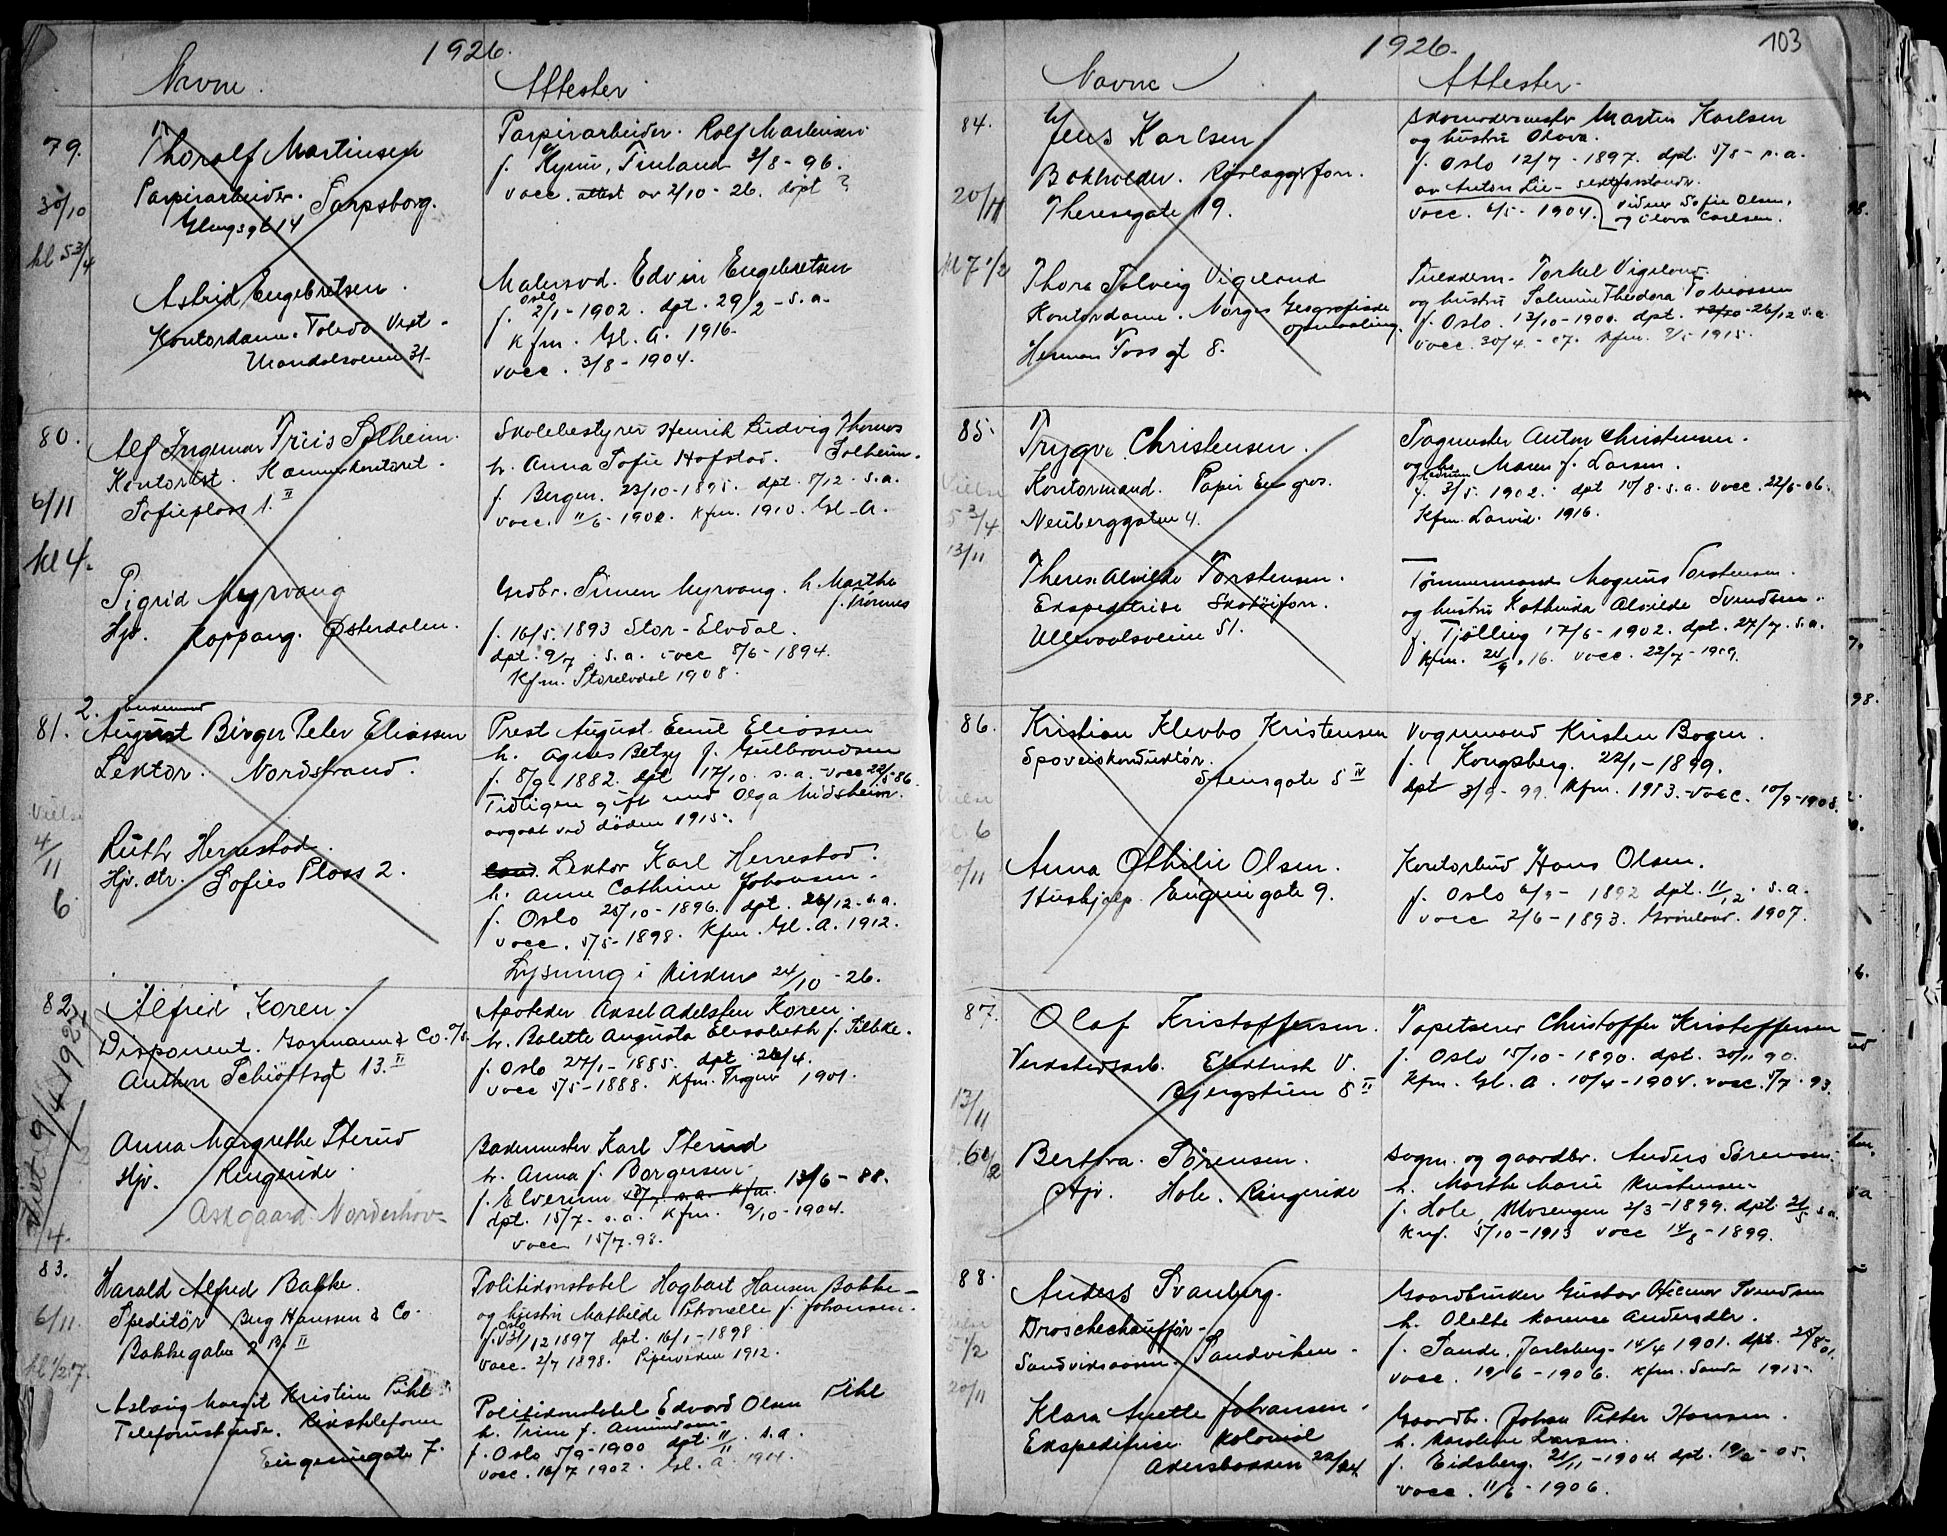 1926.
Navne. Attester
79. Thoralf Martinsen
Papirarbeider. Sarpsborg.
Glengsgt 14
30/10
kl 5 3/4
Papirarbeider. Rolf Martinsen.
f. Kymi, Finland 3/8 - 96.
vacc. attest av 2/10 - 26. døpt ?
Astrid Engebretsen.
Kontordame. Toledo Vegt.
Mandalsveien 31.
Malersvd. Edvin Engebretsen
f. Oslo 2/1 - 1902. dpt. 29/2 - s.a.
Kfm. Gl. A. 1916.
vacc. 3/8 - 1904.
80. Alf Ingemar Friis Solheim.
Kontorist. Kæmnerkontoret.
Sofieplass 1. II
6/11
kl 4.
Skolebestyrer Henrik Ludvig Thomas Solheim.
h. Anna Sofie Hofstad.
f. Bergen. 23/10 - 1895. dpt. 8/12. s.a.
vacc. 11/6 - 1900. Kfm. 1910. Gl. A.
Sigrid Myrvang
Hjv. Koppang. Østerdalen.
Grdbr. Simen Myrvang. h. Marthe
f. Trønnes
f. 16/5. 1893 Stor-Elvdal.
dpt. 9/7. s.a. vacc 8/6 - 1894.
Kfm. Storelvdal 1908.
81. 2. Enkemand
August Birger Peter Eliassen
Lektor. Nordstrand.
Vielse
4/11
6
Prest August Emil Eliassen
h. Agnes Betzy f. Gulbrandsen
f. 8/9 - 1882. dpt 17/10. s.a. vacc 22/5 86
Tidligere gift med Olga Midsheim.
avgaat ved døden 1915.
Ruth Herrestad.
Hjv. dtr. Sofies Plass 2.
Lektor Karl Herrestad.
h. Anne Cathrine Johansen.
f. Oslo 25/10 - 1896. dpt. 26/12. s.a.
vacc. 5/5 - 1898. Kfm. Gl. A. 1912.
Lysning i Kirken 24/10 - 26.
82. Alfred Koren.
Disponent. Gormann & Co. A/S
Anthon Schiøttsgt 13. II
Viet 9/4 1927
Apoteker Axsel Adelsten Koren.
h. Balette Augusta Elisabeth f.
f. Oslo 27/1 - 1885. dpt 26/4.
vacc 5/5 - 1888. Kfm. Trogner 1901.
Anna Margrethe Sterud
Hjv. Ringerike.
Askgaard. Norderhov.
Bademester Karl Sterud
h. Anna f. Borgersen.
f. Elverum 13/6 - 88.
dpt. 15/7 - s.a. Kfm. 9/10 - 1904.
vacc 15/7. 98.
83. Harald Alfred Bakke.
Speditør Berg Hanssen & Co
Bakkegaten 2 B. II
6/11.
kl 1/2 7.
Politikonstabel Hagbart Hansen Bakke
og hustru Mathilde Petronelle f. Johansen.
f. Oslo 31/12 1897 dpt. 16/1 - 1898
vacc. 2/7 1898. Piperviken 1912.
Aslaug Margit Kristine Pihl
Telefonistinde. Rikstelefonen
Eugeniegate 7.
Politikonstabel Edvard Olsen Pihl
h. Trine f. Amundsen.
f. Oslo 5/9 - 1900 dpt. 11/11. s.a.
vacc. 16/7 1902. Gl. A. 1914.
1926. 103
Navne Attester.
84. Jens Karlsen
Bokholder. Rørleggerforr.
Theresegate 19.
20/11
kl 7 1/2
Skomakermester Martin Karlsen
og hustru Olava.
f. Oslo 12/7 - 1897. dpt. 5/8 - s.a.
av Anton Lie - sektforstander.
vacc. 6/5 - 1904. vidner Sofie Olsen,
og Olava Carlsen.
Thora Solveig Vigeland
Kontordame. Norges Geografiske
opmaaling.
Herman Foss gt 8.
Torkel Vigeland.
og hustru Salmine Theodora Tobiassen
f. Oslo. 13/10 - 1900. dpt. 26/12 s.a.
vacc. 30/4 - 07. Kfm. 1915.
85. Trygve Christensen.
Kontormand. Papir Engros.
Neuberggaten 4.
Vielse
5 3/4
13/11
Togmester Anton Christensen.
og Maren f. Larsen.
f. 3/5. 1902. dpt 10/8. s.a. vacc. 22/6 - 06.
Kfm. Larvik. 1916.
Therese Alvilde Torstensen.
Ekspeditrise Skotøiforr.
Ullevaalsveien 51.
Tømmermand Magnus Torstensen.
og hustru Kathinka Alvilde Svendsen.
f. Tjølling 17/6 - 1902. dpt. 27/7. s.a.
Kfm. 24/9. 16. vacc. 22/7 - 1909.
86. Kristian Klevbo Kristensen
Sporveiskonduktør.
Stensgate 5 IV
6
Vognmand Kristen Bogen.
f. Kongsberg. 22/1 - 1899.
dpt 3/9 - 99. Kfm. 1913. vacc. 10/9 - 1908.
Anna Othilie Olsen.
Hushjelp. Eugenigate 9.
Kontorbud Hans Olsen.
f. Oslo 6/9 - 1892 dpt. 11/12. s.a.
vacc 2/6 - 1893. Grønland. 1907.
87. Olaf Kristoffersen.
Verkstedsarb. Elektrisk V.
Bjergstien 8 II
13/11
6 1/2
Tapetserer Christoffer Kristoffersen
f. Oslo 15/10 - 1890. dpt. 30/11 90.
Kfm. Gl. A. 10/4 - 1904. vacc. 5/7. 93.
Bertha Sørensen.
Hjv. Hole. Ringerike
Sogn. og gaardbr. Anders Sørensen.
h. Marthe Marie Kristensen.
f. Hole, Mosengen 2/3 - 1899. dpt. 21/5 s.a.
Knf. 5/10 - 1913 vacc 14/8 - 1899.
88. Anders Svanberg.
Droschechauffør.
Sandviksveien. Sandviken.
5 1/2
20/11
Gaardbruker Gustav Svendsen
h. Olette Karense Andersdtr.
f. Sande, Jarlsberg. 14/4 1901. dpt. 25/8 01.
vacc. 19/6 - 1906. Kfm. Sande 1915.
Klara Anette Johansen.
Ekspeditrise Kolonial
Akersbakken 22/24
Gaardbr. Johan Petter Hansen.
h. Karoline Larsen.
f. Eidsberg. 21/11 - 1904. dpt. - 05.
vacc. 11/6 - 1906.